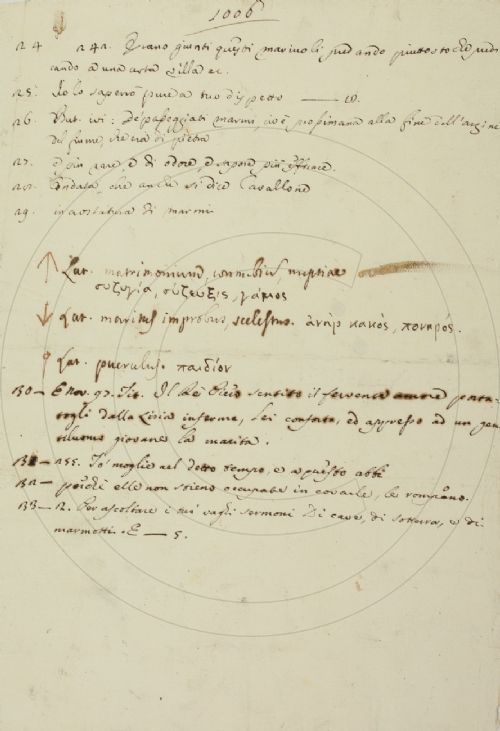 1006
24 242. Erano giunti questi marivoli, andando piuttosto che
cando a una certa Villa ec.
25. Io lo saperrò pure a tuo dispetto — 
26. But. ivi: De' passeggiati marmi, cioè prossimana alla fine dell'argine
del fiume, che era di pietra
27. e più e di odore, e sapore più efficace.
28. Ondata, che anche si dice Cavallone
29. incrostatura di marmi
Lat. matrimonium, connubium, nuptiae
συζογία, σύζευξις, γάμος
Lat. maritus improbus, scelestus. ἀνὰρ κακὸς, πονηρός.
Lat. puerulus. παιδίον
30 — E nov. 97. Tit. Il Re Piero sentito il fervente amore porta-
togli dalla Lisia inferma, lei conforta, ed appresso ad un gen-
tiluomo giovane la marita.
31 — 155. To' moglie nel detto tempo, e a questo abbi
32 — poichè elle non stieno occupate in covaile, le rompano.
33 — 12. Per ascoltare i tuoi vaghi sermoni Di cave, di sotterra, e di
marmotti. E — 5.